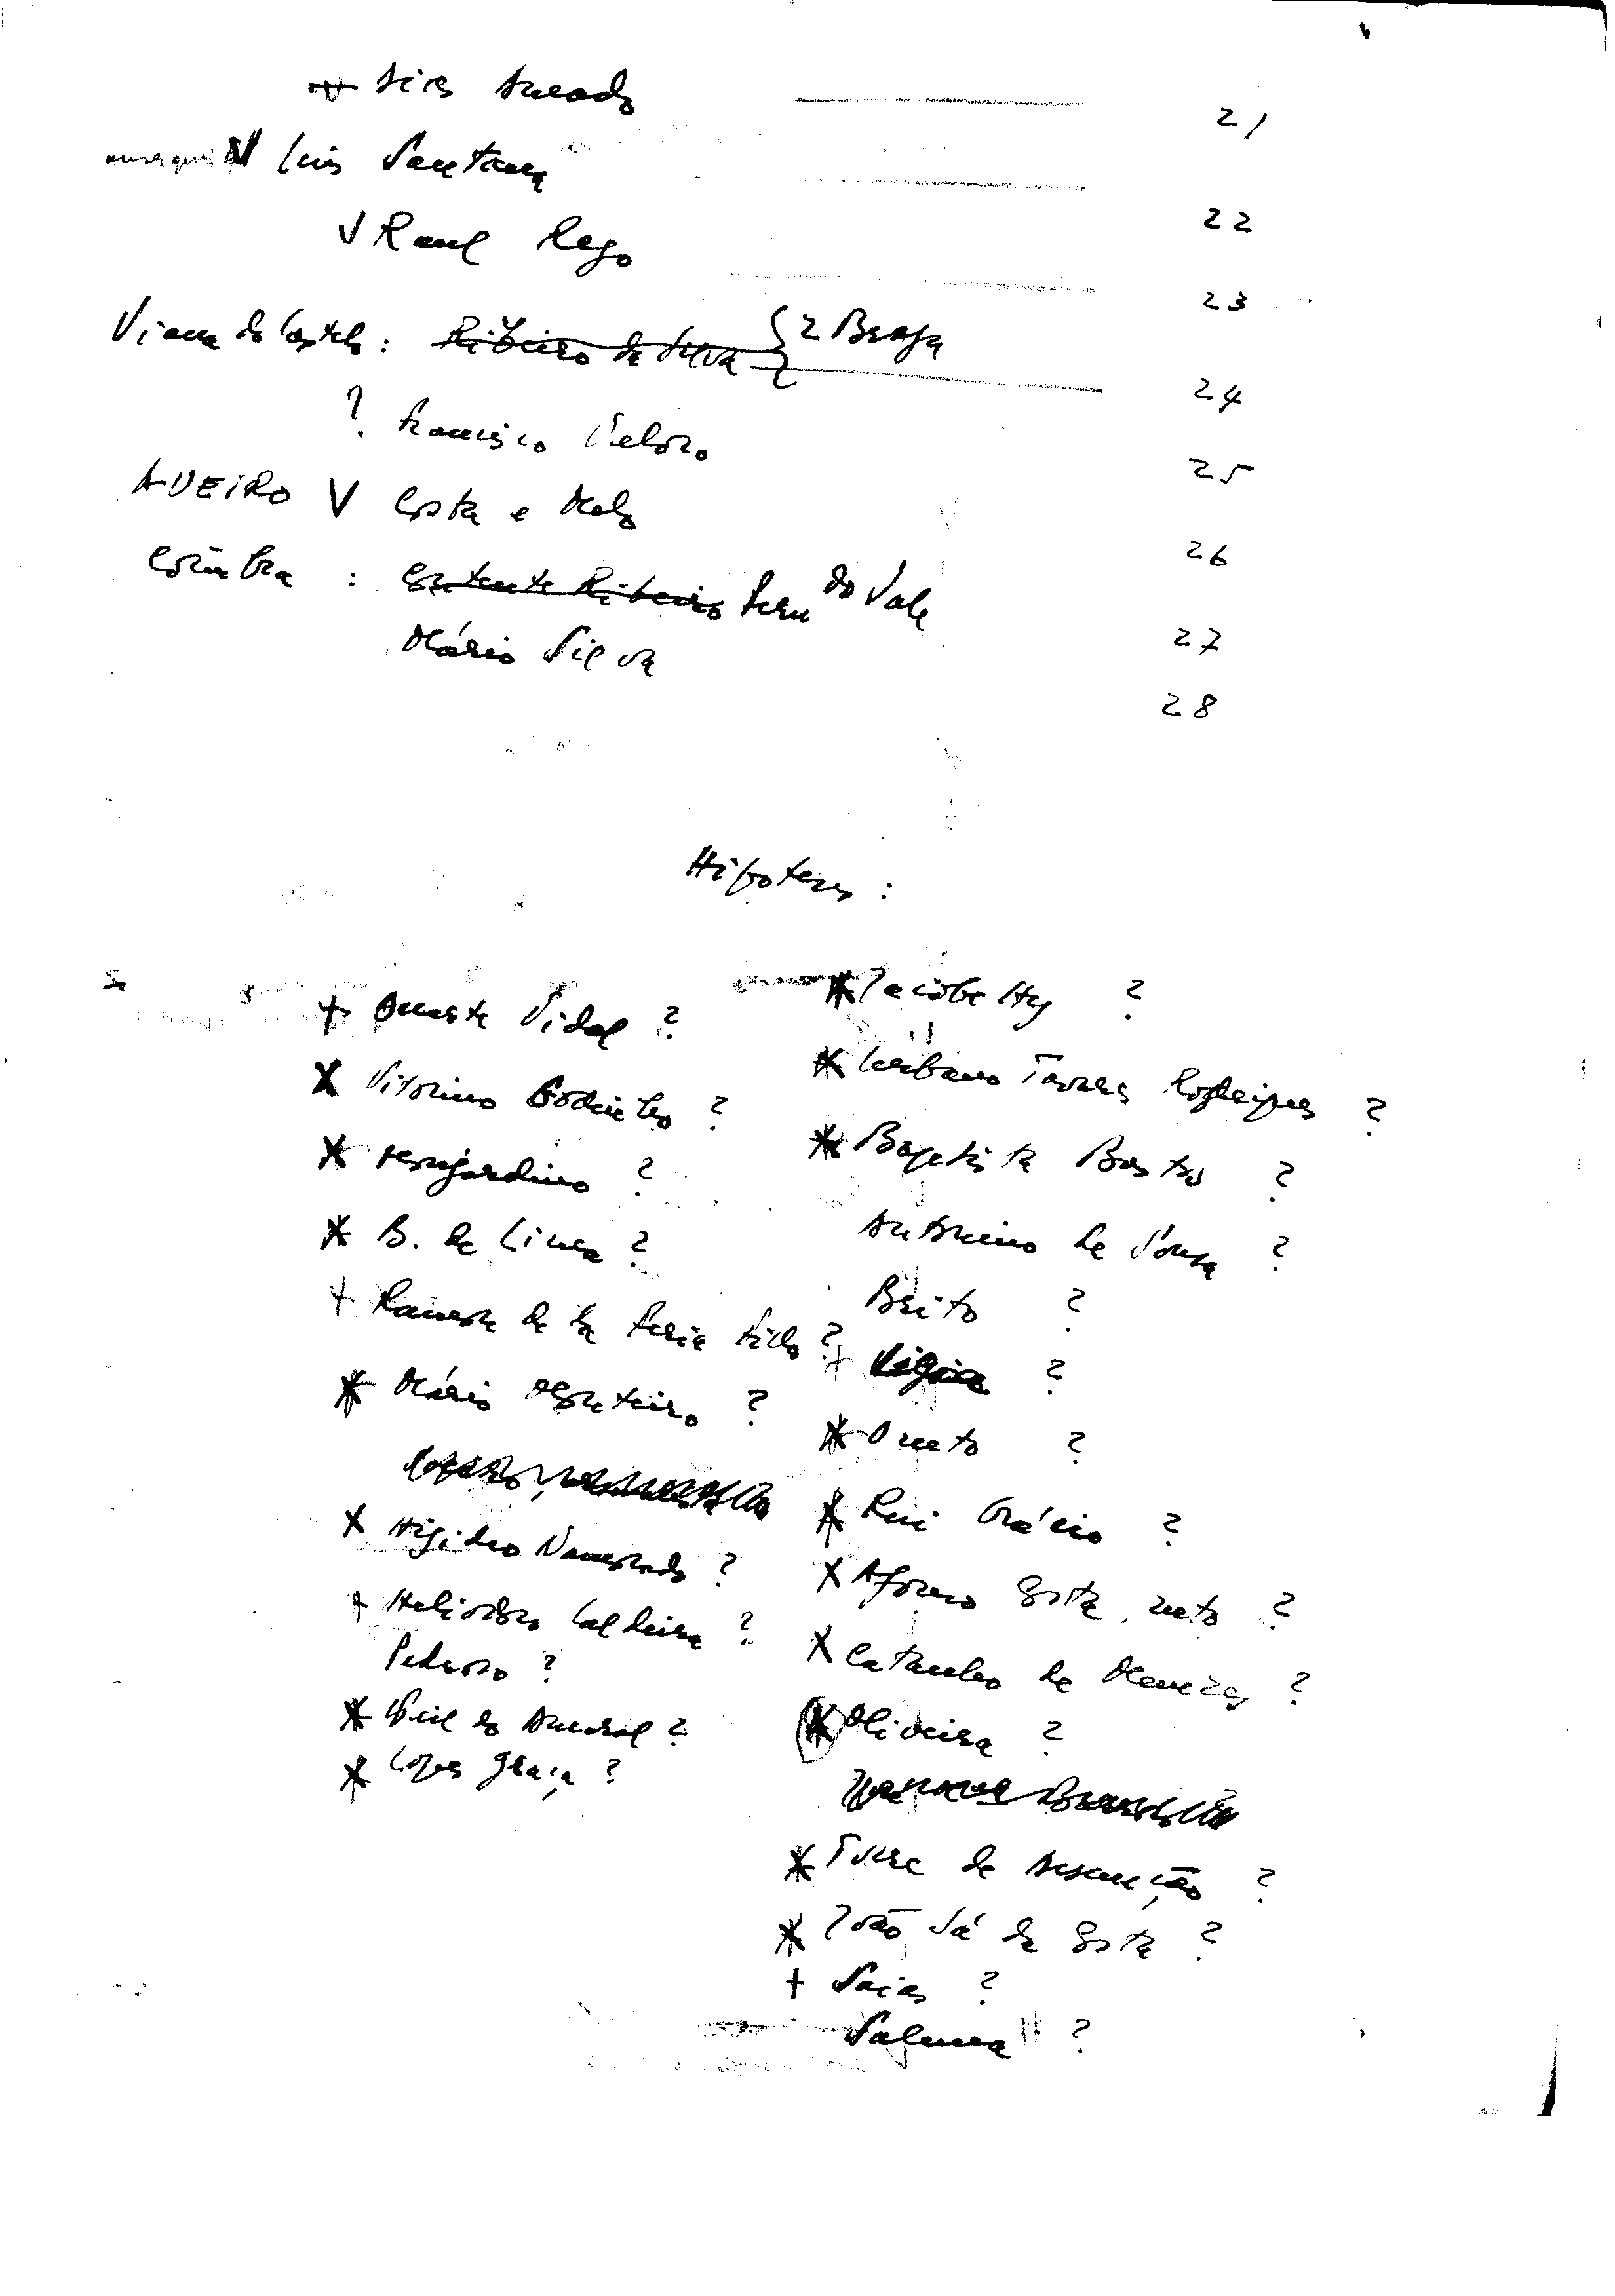 Dias Amado 21
V Luis Santana 22
V Raul Rego 23
Viana do Castelo: Ribeiro da Silva } 2 Braga 24
? Francisco Veloso 25
AVEIRO V Costa e Melo 26
Coimbra : Costente Ribeiro Fern do Vale 27
Mário Silva 28
Hipoteses :
+ Duarte Vidal ?
X Vitorino Godinho ?
* Monjardino ?
* B. de Lima ?
+ Ramon de la Feria filho ?
* Mário Monteiro ?
X Higidio Namorado ?
+ Heliodoro Caldeira ?
Pedroso ?
* Keil do Amaral ?
* Lopes Graça ?
* Jacobetty ?
* Urbano Tavares Rodrigues ?
* Baptista Bastos ?
Antonino de Sousa ?
Brito ?
+ ?
* Oneto ?
* Rui Grácio ?
X Afonso Costa, neto ?
X Catanho de Menezes ?
* Oliveira ?
* Torre de Assunção ?
* João Sá da Costa ?
+ Saias ?
Salema ?